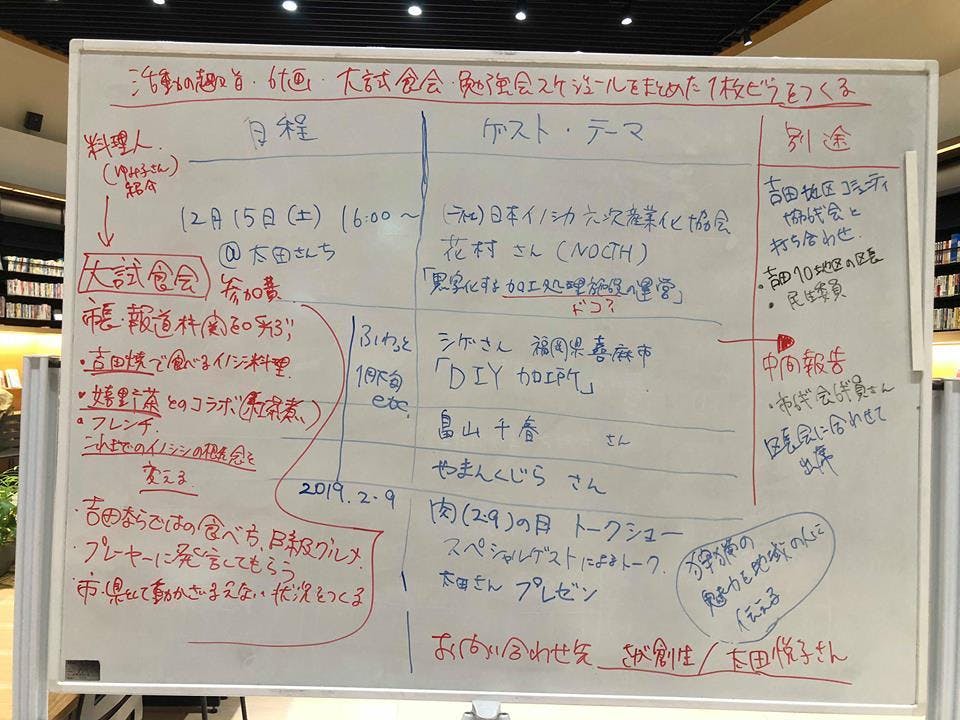 活動の趣旨・計画・大試食会・勉強会スケジュールをまとめた1枚ビラをつくる
料理人
(ゆみ子さん)
紹介
大試食会
参加費
市長・報道枠(実)を呼ぶ
・吉田焼で食べるイノシシ料理
・嬉野茶とのコラボ(お茶煮)
・フレンチ
これまでのイノシシの概念を
変える
・吉田ならではの食べ方、B級グルメ
・プレーヤーに発言してもらう
・市・県として動かざるえない状況をつくる
日程
12月15日(土) 16:00〜
@太田さんち
ふわっと
1月下旬
etc
2019.2.9
ゲスト・テーマ
(一社)日本イノシカ六次産業化協会
花村さん (NOCTH)
「黒字化する加工処理施設の運営」
ドコ?
シゲさん 福岡県嘉麻市
「DIY 加工所」
畠山千春 さん
やまんくじら さん
肉(2.9)の日 トークショー
スペシャルゲストによるトーク
太田さん プレゼン
お問い合わせ先 さが創生/太田悦子さん
別途
吉田地区コミュニティ
協議会と
打ち合わせ
・吉田10地区の区長
・民生委員
中間報告
・市議会議員さん
区長会に合わせて
出席
狩猟の
魅力を地域の人に
伝える